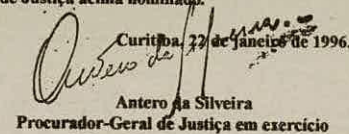 de Justiça acima nominado.
Curitiba, 22 de janeiro de 1996.
Antero da Silveira
Procurador-Geral de Justiça em exercício